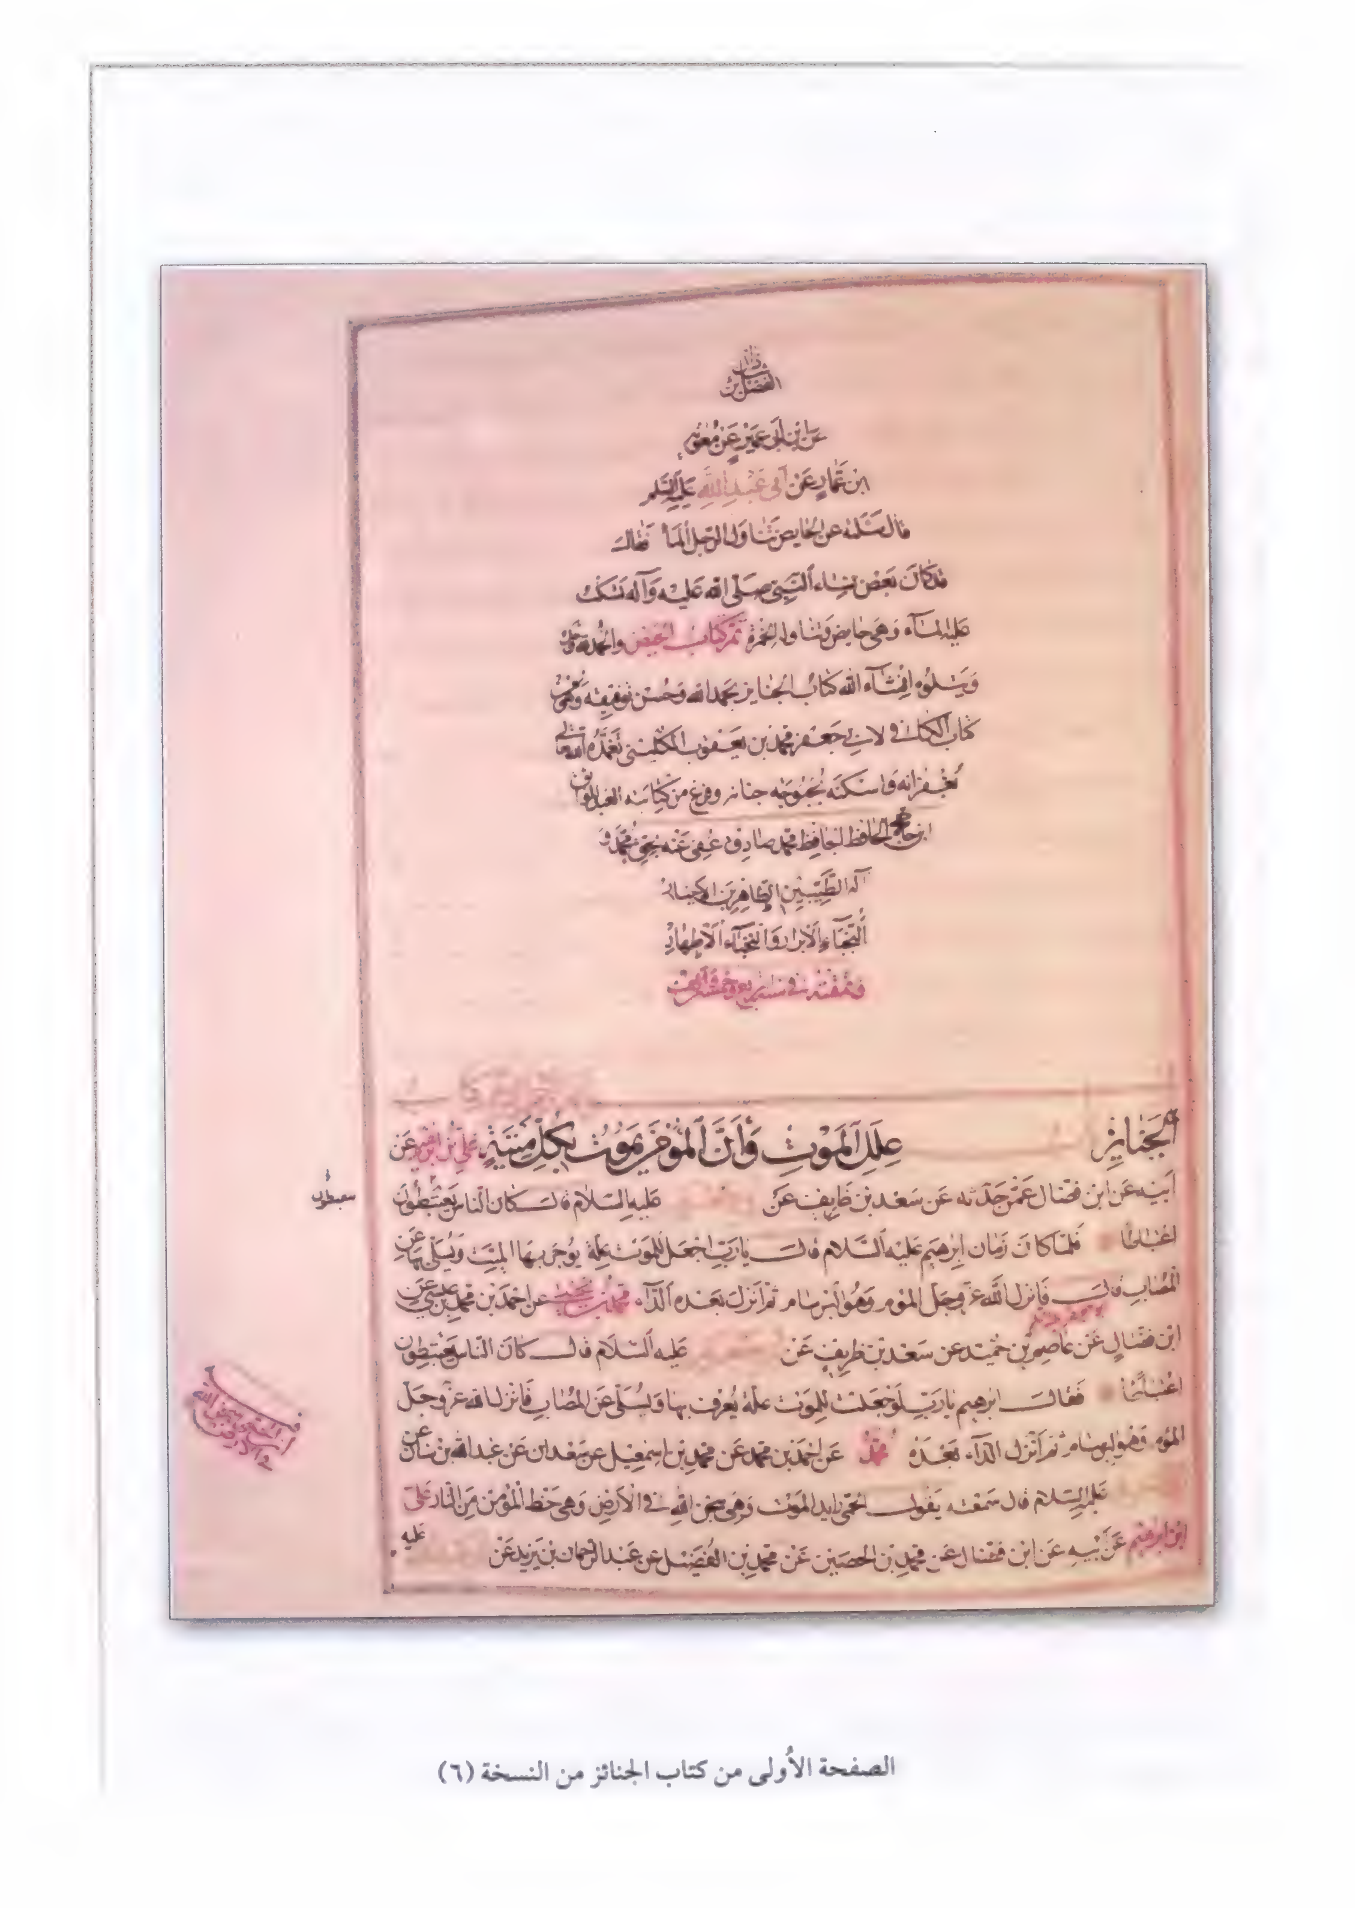 الفضل بن شاذان
عن ابن أبي عمير عن معوية
ابن عمار عن أبي عبد الله عليه السلم
قال سئلته عن الحايض تناول الرجل الماء فقال
قد كان بعض نساء النبي صلى الله عليه وآله تسكب
عليه الماء وهي حايض وتناوله الخمرة تم كتاب الحيض والحمد لله
ويتلوه إنشاء الله كتاب الجنايز بحمد الله وحسن توفيقه وهو من
كتاب الكافي لابي جعفر محمد بن يعقوب الكليني تغمده الله تعالى
بغفرانه واسكنه بحبوحة جنانه وفرغ من كتابته العبد
ابن الحافظ محمد صادق عفى عنه بحق محمد و
آله الطيبين الطاهرين
النجباء الابرار و الاطهار
في سنة
كتاب
الجنايز
علل الموت وأن المؤمن يموت بكل ميتة علي بن ابرهيم عن
ابيه عن ابن فضال عمن حدثه عن سعد بن ظريف عن عليه السلام قال كان الناس يعتبطون
اعتباطا فلما كان زمان إبرهيم عليه السلام قال يا رب اجعل للموت علة يوجر بها الميت ويسلى بها عن
المصاب قال فانزل الله عز وجل الموم وهو البرسام ثم أنزل بعده الداء محمد بن يحيى عن احمد بن محمد بن عيسى عن
ابن فضال عن عاصم بن حميد عن سعد بن ظريف عن عليه السلام قال كان الناس يعتبطون
اعتباطا فقال ابرهيم يا رب لو جعلت للموت علة يعرف بها ويسلى عن المصاب فانزل الله عز وجل
الموم وهو البرسام ثم أنزل الداء بعده محمد عن احمد بن محمد عن محمد بن اسمعيل عن سعدان عن عبد الله بن سنان عن
عليه السلام قال سمعته يقول الحمى رايد الموت وهي سجن الله في الأرض وهي حظ المؤمن من النار علي
ابن ابراهيم عن أبيه عن ابن فضال عن محمد بن الحصين عن محمد بن الفضيل عن عبد الرحمان بن يزيد عن
عليه
الصفحة الأولى من كتاب الجنائز من النسخة (٦)